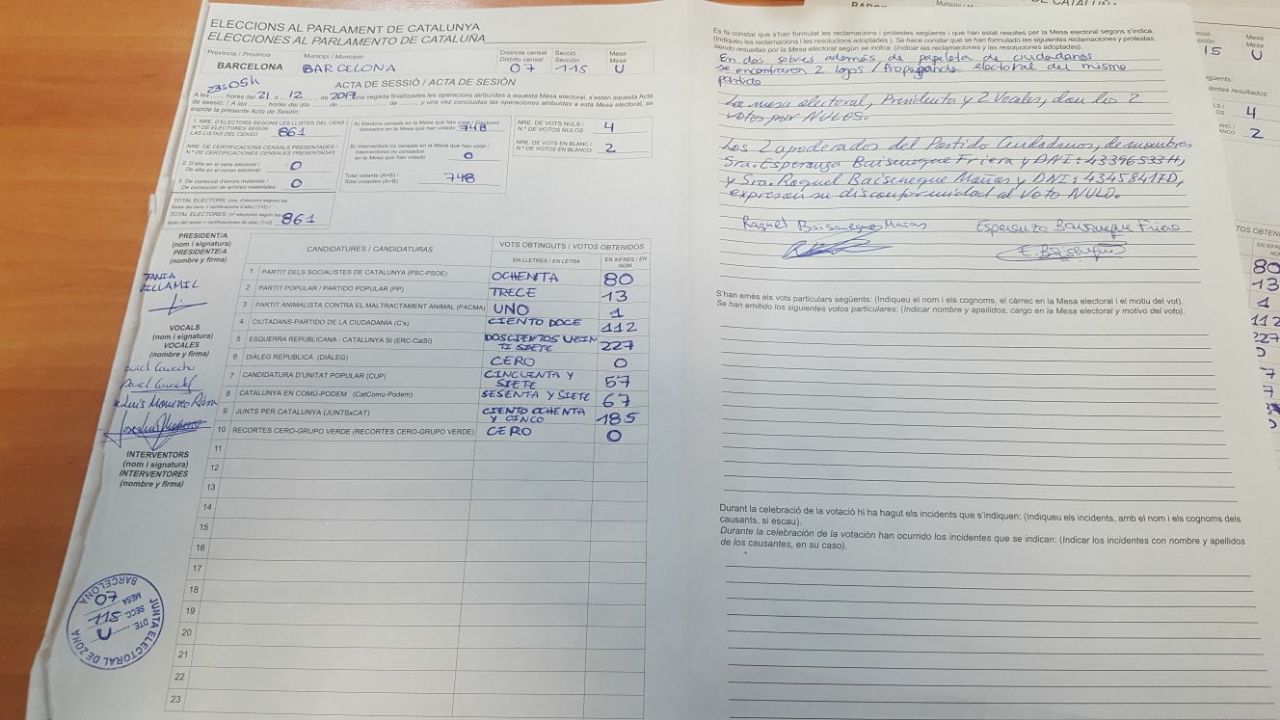 ELECCIONS AL PARLAMENT DE CATALUNYA
ELECCIONES AL PARLAMENTO DE CATALUÑA
Provincia / Provincia
BARCELONA
Municipi / Municipio
BARCELONA
Districte censal
Distrito censal
07
Secció
Sección
115
Mesa
Mesa
U
ACTA DE SESSIÓ / ACTA DE SESIÓN
A les 23:05h hores del 21 d 12 de 2017 una vegada finalitzades les operacions atribuïdes a aquesta Mesa electoral, s'estén aquesta Acta
de sessió. / A las ..... horas del día ..... de ..... de ....., y una vez concluidas las operaciones atribuidas a esta Mesa electoral, se
expide la presente Acta de Sesión.
1. NRE. D'ELECTORS SEGONS LES LLISTES DEL CENS /
N.º DE ELECTORES SEGÚN
LAS LISTAS DEL CENSO
861
NRE. DE CERTIFICACIONS CENSALS PRESENTADES /
N.º DE CERTIFICACIONES CENSALES PRESENTADAS
2. D'alta en el cens electoral /
De alta en el censo electoral
0
3. De correcció d'errors materials /
De corrección de errores materiales
0
TOTAL ELECTORES
861
A) Electors censats en la Mesa que han votat / Electores
censados en la Mesa que han votado
748
B) Interventors no censats
en la Mesa que han votat /
Interventores no censados
en la Mesa que han votado
0
Total votants (A+B) /
Total votantes (A+B)
748
NRE. DE VOTS NULS /
N.º DE VOTOS NULOS
4
NRE. DE VOTS EN BLANC /
N.º DE VOTOS EN BLANCO
2
PRESIDENT/A
(nom i signatura)
PRESIDENTE/A
(nombre y firma)
TANIA
VILLAMIL
VOCALS
(nom i signatura)
VOCALES
(nombre y firma)
INTERVENTORS
(nom i signatura)
INTERVENTORES
(nombre y firma)
CANDIDATURES / CANDIDATURAS
VOTS OBTINGUTS / VOTOS OBTENIDOS
EN LLETRES / EN LETRA
EN XIFRES / EN NÚM.
1 PARTIT DELS SOCIALISTES DE CATALUNYA (PSC-PSOE) OCHENTA 80
2 PARTIT POPULAR / PARTIDO POPULAR (PP) TRECE 13
3 PARTIT ANIMALISTA CONTRA EL MALTRACTAMENT ANIMAL (PACMA) UNO 1
4 CIUTADANS-PARTIDO DE LA CIUDADANÍA (C's) CIENTO DOCE 112
5 ESQUERRA REPUBLICANA - CATALUNYA SÍ (ERC-CatSí) DOSCIENTOS VEIN TI SIETE 227
6 DIÀLEG REPUBLICÀ (DIÀLEG) CERO 0
7 CANDIDATURA D'UNITAT POPULAR (CUP) CINCUENTA Y SIETE 57
8 CATALUNYA EN COMÚ-PODEM (CatComú-Podem) SESENTA Y SIETE 67
9 JUNTS PER CATALUNYA (JUNTSxCAT) CIENTO OCHENTA Y CINCO 185
10 RECORTES CERO-GRUPO VERDE (RECORTES CERO-GRUPO VERDE) CERO 0
11
12
13
14
15
16
17
18
19
20
21
22
23
JUNTA ELECTORAL DE ZONA
BARCELONA
DTE. U
SECC. 115
MESA 07
Es fa constar que s'han formulat les reclamacions i protestes següents i que han estat resoltes per la Mesa electoral segons s'indica:
(Indiqueu les reclamacions i les resolucions adoptades). Se hace constar que se han formulado las siguientes reclamaciones y protestas,
siendo resueltas por la Mesa electoral según se indica: (Indicar las reclamaciones y las resoluciones adoptadas).
En dos sobres además de papeleta de ciudadanos
se encontraron 2 logos / Propaganda electoral del mismo
partido
La mesa electoral, Presidenta y 2 Vocales, dan los 2
votos por NULOS.
Los 2 apoderados del Partido Ciudadanos, de nombres
Sra. Esperanza y DNI:
y Sra. Raquel y DNI:
expresan su disconformidad al Voto NULO.
Raquel
Esperanza
S'han emès els vots particulars següents: (Indiqueu el nom i els cognoms, el càrrec en la Mesa electoral i el motiu del vot).
Se han emitido los siguientes votos particulares: (Indicar nombre y apellidos, cargo en la Mesa electoral y motivo del voto).
Durant la celebració de la votació hi ha hagut els incidents que s'indiquen: (Indiqueu els incidents, amb el nom i els cognoms dels
causants, si escau).
Durante la celebración de la votación han ocurrido los incidentes que se indican: (Indicar los incidentes con nombre y apellidos
de los causantes, en su caso).
Mesa
Mesa
15
U
4
2
80
13
1
112
227